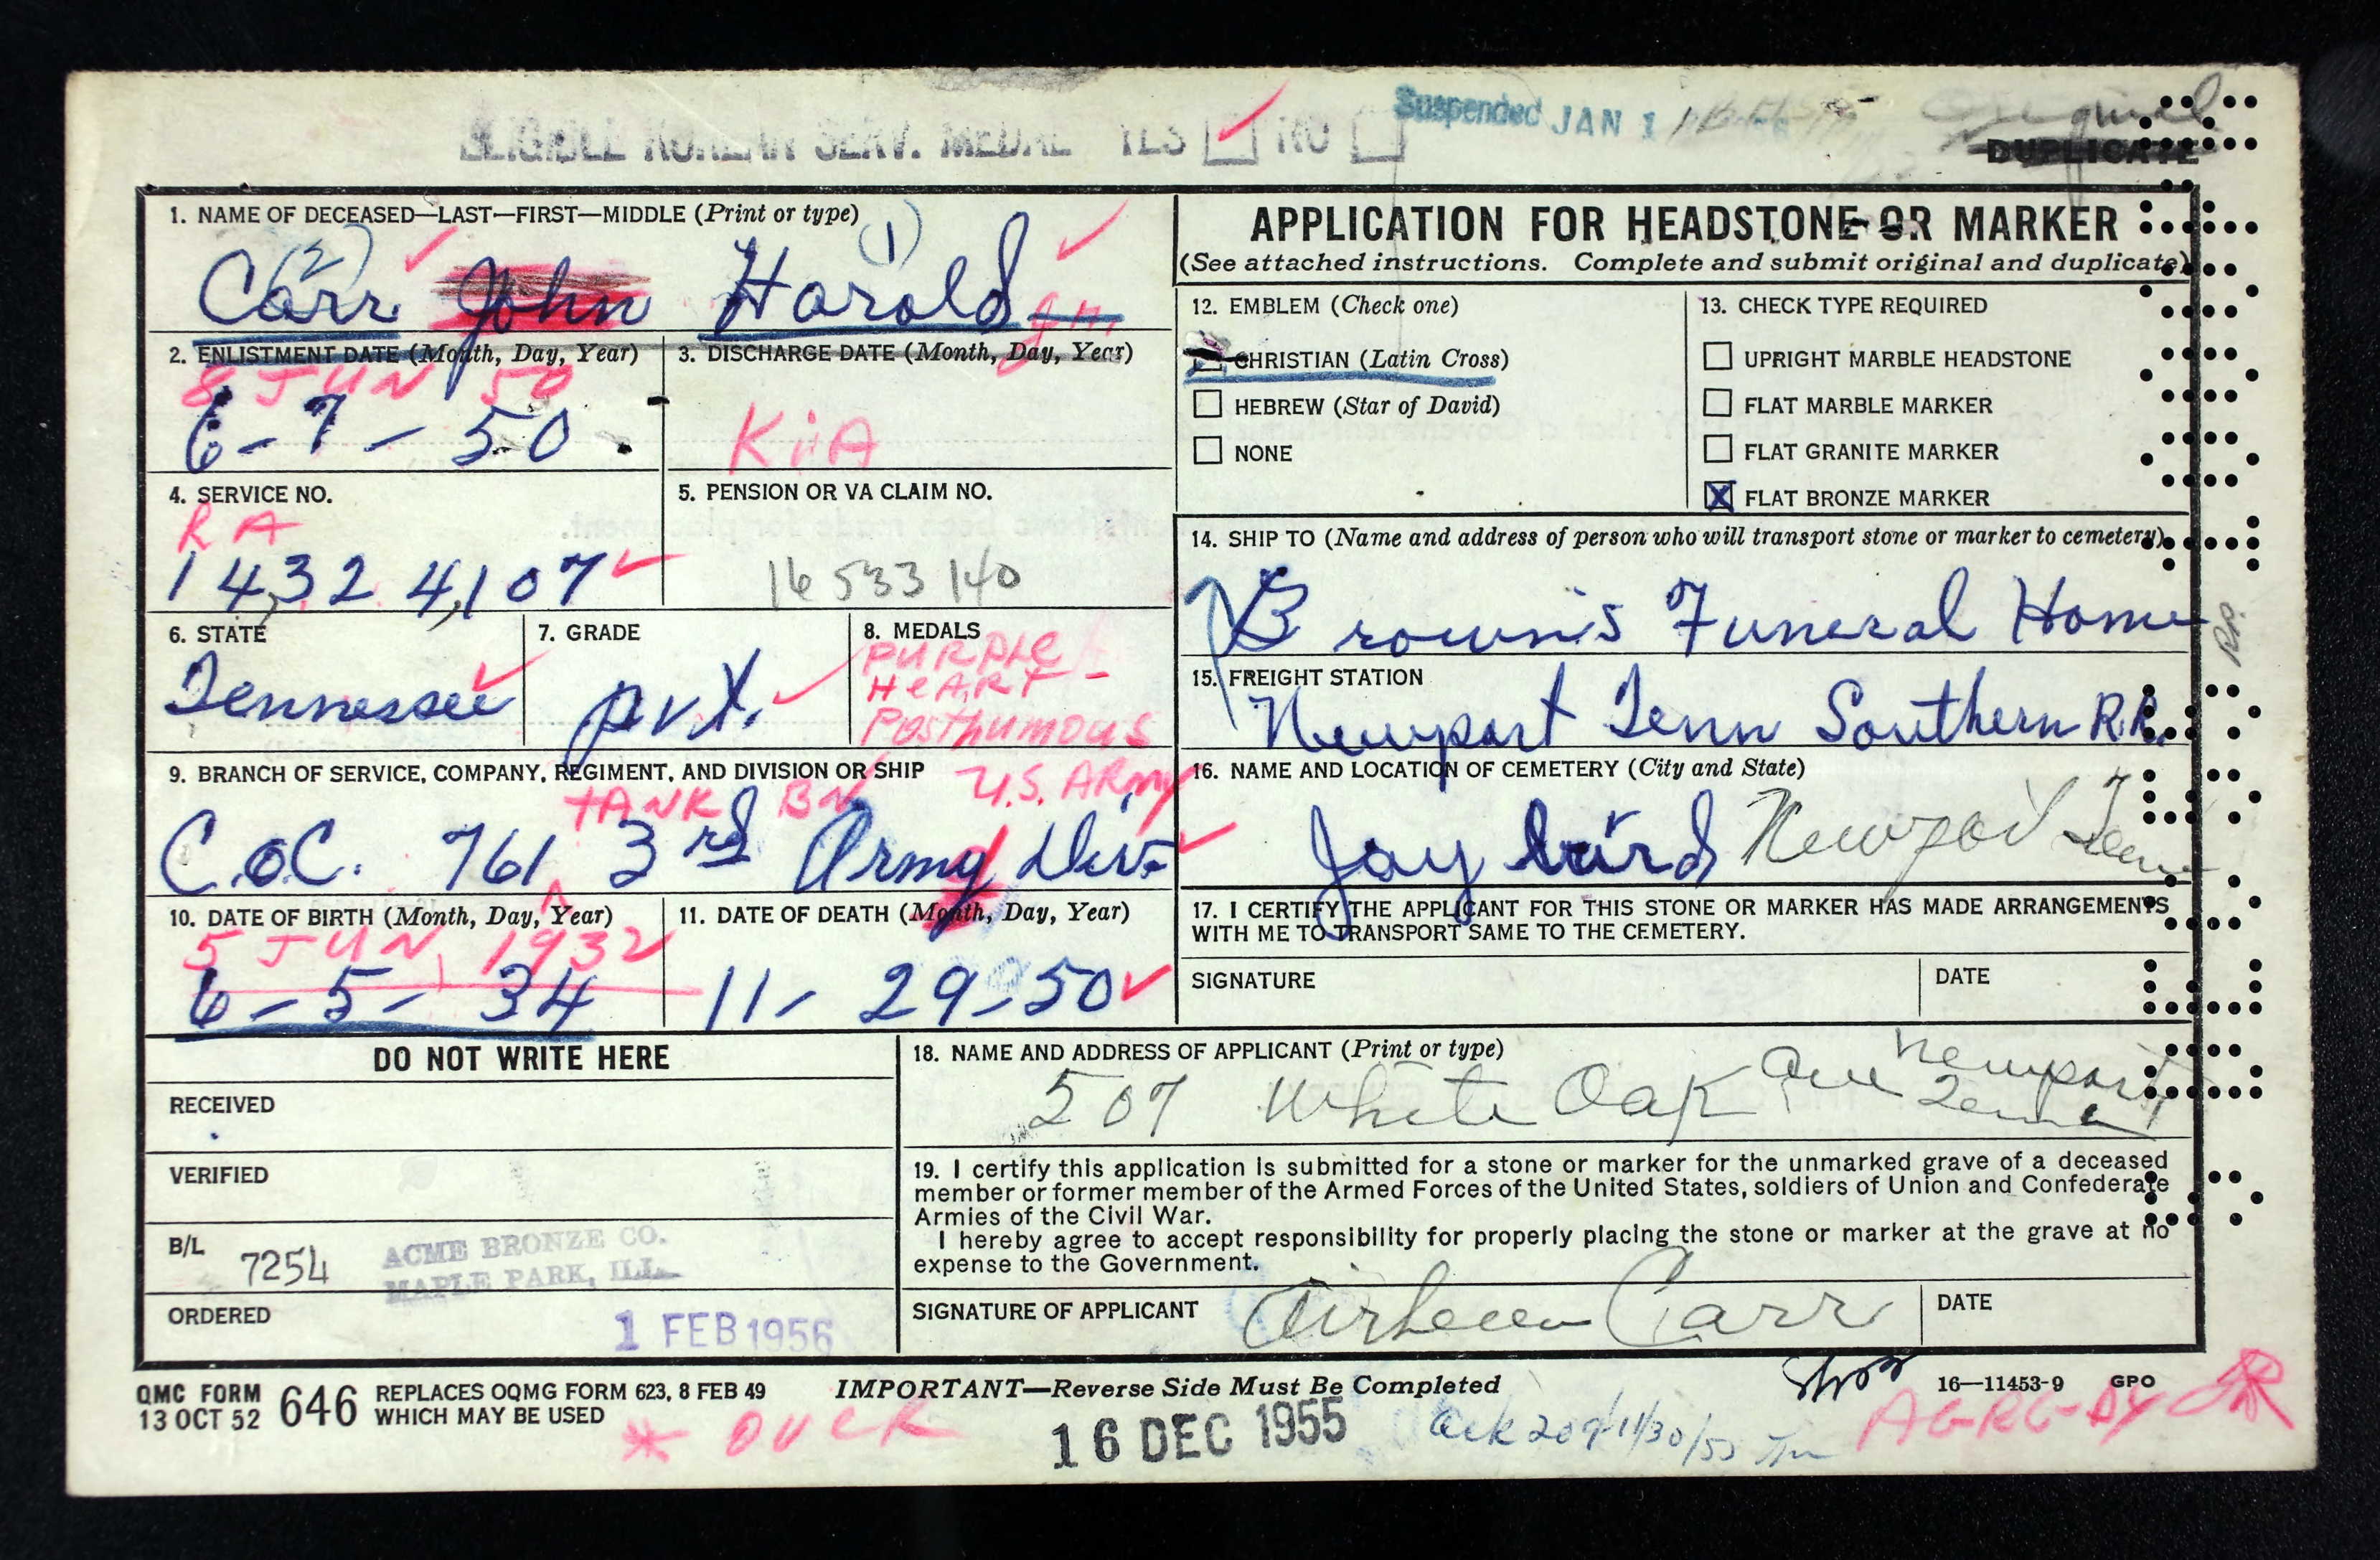 ELIGIBLE KOREAN SERV. MEDAL YES ✓ NO
Suspended JAN 1
Original
DUPLICATE
1. NAME OF DECEASED—LAST—FIRST—MIDDLE (Print or type)
(2) (1)
Carr John Harold
APPLICATION FOR HEADSTONE OR MARKER
(See attached instructions. Complete and submit original and duplicate)
2. ENLISTMENT DATE (Month, Day, Year)
8 JUN 50
6-7-50
3. DISCHARGE DATE (Month, Day, Year)
KiA
4. SERVICE NO.
RA
14,324,107
5. PENSION OR VA CLAIM NO.
16 533 140
6. STATE
Tennessee
7. GRADE
pvt.
8. MEDALS
PURPLE
HEART -
Posthumous
9. BRANCH OF SERVICE, COMPANY, REGIMENT, AND DIVISION OR SHIP
TANK BN U.S. ARmy
C.o.C. 761 3rd Army Div.
10. DATE OF BIRTH (Month, Day, Year)
5 JUN 1932
6-5-34
11. DATE OF DEATH (Month, Day, Year)
11-29-50
12. EMBLEM (Check one)
CHRISTIAN (Latin Cross)
HEBREW (Star of David)
NONE
13. CHECK TYPE REQUIRED
UPRIGHT MARBLE HEADSTONE
FLAT MARBLE MARKER
FLAT GRANITE MARKER
X FLAT BRONZE MARKER
14. SHIP TO (Name and address of person who will transport stone or marker to cemetery)
Brown's Funeral Home
RR.
15. FREIGHT STATION
Newport Tenn Southern R.R.
16. NAME AND LOCATION OF CEMETERY (City and State)
Jay bird Newport Tenn
17. I CERTIFY THE APPLICANT FOR THIS STONE OR MARKER HAS MADE ARRANGEMENTS
WITH ME TO TRANSPORT SAME TO THE CEMETERY.
SIGNATURE
DATE
DO NOT WRITE HERE
RECEIVED
VERIFIED
B/L 7254
ACME BRONZE CO.
MAPLE PARK, ILL.
ORDERED
1 FEB 1956
18. NAME AND ADDRESS OF APPLICANT (Print or type)
507 White Oak Ave Newport
Tenn
19. I certify this application is submitted for a stone or marker for the unmarked grave of a deceased
member or former member of the Armed Forces of the United States, soldiers of Union and Confederate
Armies of the Civil War.
I hereby agree to accept responsibility for properly placing the stone or marker at the grave at no
expense to the Government.
SIGNATURE OF APPLICANT
Airleen Carr
DATE
QMC FORM 646
13 OCT 52
REPLACES OQMG FORM 623, 8 FEB 49
WHICH MAY BE USED
IMPORTANT—Reverse Side Must Be Completed
16—11453-9 GPO
* OVER
16 DEC 1955
11/30/55